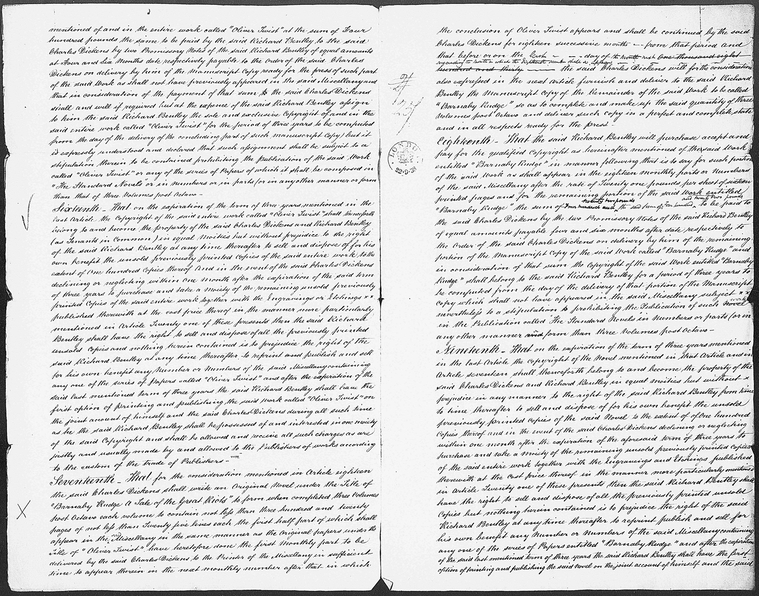 mentioned of and in the entire work called "Oliver Twist" at the sum of Four
hundred pounds the same to be paid by the said Richard Bentley to the said
Charles Dickens by two Promissory Notes of the said Richard Bentley of equal amounts
at Four and Six Months date, respectively payable to the Order of the said Charles
Dickens on delivery by him of the Manuscript Copy ready for the press of such part
of the said Work as shall not have previously appeared in the said Miscellany and
that in consideration of the payment of that sum to the said Charles Dickens he
shall and will if required but at the expense of the said Richard Bentley assign
to him the said Richard Bentley the sole and exclusive Copyright of and in the
said entire work called "Oliver Twist" for the period of three years to be computed
from the day of the delivery of the remaining part of such manuscript Copy but it
is expressly understood and declared that such assignment shall be subject to a
stipulation therein to be contained prohibiting the Publication of the said Work
called "Oliver Twist" or any of the series of Papers of which it shall be composed in
"The Standard Novels or in Numbers or in parts or in any other manner or form
than that of three Volumes post Octavo –
Sixteenth – That on the expiration of the term of three years mentioned in the
last Article the Copyright of the said entire work called "Oliver Twist" shall thenceforth
belong to and become the property of the said Charles Dickens and Richard Bentley
(as Tenants in Common) in equal moieties but without prejudice to the right
of the said Richard Bentley at any time thereafter to sell and dispose of for his
own benefit the unsold previously printed Copies of the said entire work, to the
extent of One hundred Copies thereof And in the event of the said Charles Dickens
declining or neglecting within One month after the expiration of the said term
of three years to purchase and take a moiety of the remaining unsold previously
printed Copies of the said entire work together with the Engravings or Etchings
published therewith at the cost price thereof in the manner more particularly
mentioned in Article Twenty one of these presents then the said Richard
Bentley shall have the right to sell and dispose of all the previously printed
unsold Copies and nothing herein contained is to prejudice the right of the
said Richard Bentley at any time thereafter to reprint and publish and sell
for his own benefit any Number or Numbers of the said Miscellany containing
any one of the series of Papers called "Oliver Twist" and after the expiration of the
said last mentioned term of three years the said Richard Bentley shall have the
first option of printing and publishing the said work called "Oliver Twist" on
the joint account of himself and the said Charles Dickens during all such time
as he the said Richard Bentley shall be possessed of and interested in one moiety
of the said Copyright and shall be allowed and receive all such charges as are
justly and usually made by and allowed to the Publishers of works according
to the custom of the trade of Publishers –
Seventeenth – That for the consideration mentioned in Article eighteen
the said Charles Dickens shall write an Original Novel under the Title of
"Barnaby Rudge A Tale of the great Riots" to form when completed three Volumes
post Octavo each volume to contain not less than three hundred and twenty
pages of not less than Twenty five lines each the first half part of which shall
appear in the Miscellany in the same manner as the original papers under the
Title of "Oliver Twist" have heretofore done the first Monthly part to be
delivered by the said Charles Dickens to the Printer of the Miscellany in sufficient
time to appear therein in the next monthly number after that in which
the conclusion of Oliver Twist appears and shall be continued by the said
Charles Dickens for eighteen successive months – from that period and
that before or on the
the said Charles Dickens will for the consideration
aforesaid in the next article furnish and deliver to the said Richard
Bentley the Manuscript Copy of the Remainder of the said Work to be called
"Barnaby Rudge" so as to complete and make up the said quantity of three
Volumes post Octavo and deliver such Copy in a perfect and complete state
and in all respects ready for the press –
Eighteenth – That the said Richard Bentley will purchase accept and
pay for the qualified Copyright as hereinafter mentioned of the said Work
entitled "Barnaby Rudge" in manner following that is to say for such portion
of the said Work as shall appear in the eighteen monthly parts or Numbers
of the said Miscellany after the rate of Twenty one pounds per sheet of sixteen
printed pages and for the remaining portion of the said Work entitled
"Barnaby Rudge" the sum of
the said Charles Dickens by the two Promissory Notes of the said Richard Bentley
of equal amounts payable four and six months after date, respectively to
the Order of the said Charles Dickens on delivery by him of the remaining
portion of the Manuscript Copy of the said Work called "Barnaby Rudge" and
in consideration of that sum the Copyright of the said Work entitled "Barnaby
Rudge" shall belong to the said Richard Bentley for a period of three years to
be computed from the day of the delivery of that portion of the Manuscript
Copy which shall not have appeared in the said Miscellany subject
nevertheless to a stipulation to prohibiting the Publication of such
in the Publication called The Standard Novels in Numbers or parts or in
any other manner and form than three Volumes post Octavo –
Nineteenth – That on the expiration of the term of three years mentioned
in the last Article the Copyright of the Novel mentioned in that Article and in
Article seventeen shall thenceforth belong to and become the property of the
said Charles Dickens and Richard Bentley in equal moieties but without
prejudice in any manner to the right of the said Richard Bentley from time
to time thereafter to sell and dispose of for his own benefit the unsold
previously printed Copies of the said Novel to the extent of One hundred
Copies thereof and in the event of the said Charles Dickens declining or neglecting
within one month after the expiration of the aforesaid term of three years to
purchase and take a moiety of the remaining unsold previously printed Copies
of the said entire work together with the Engravings and Etchings published
therewith at the cost price thereof in the manner more particularly mentioned
in Article Twenty one of these presents then the said Richard Bentley shall
have the right to sell and dispose of all the previously printed unsold
Copies but nothing herein contained is to prejudice the right of the said
Richard Bentley at any time thereafter to reprint publish and sell for
his own benefit any Number or Numbers of the said Miscellany containing
any one of the series of Papers entitled "Barnaby Rudge" and after the expiration
of the said last mentioned term of three years the said Richard Bentley shall have the first
option of printing and publishing the said novel on the joint account of himself and the said